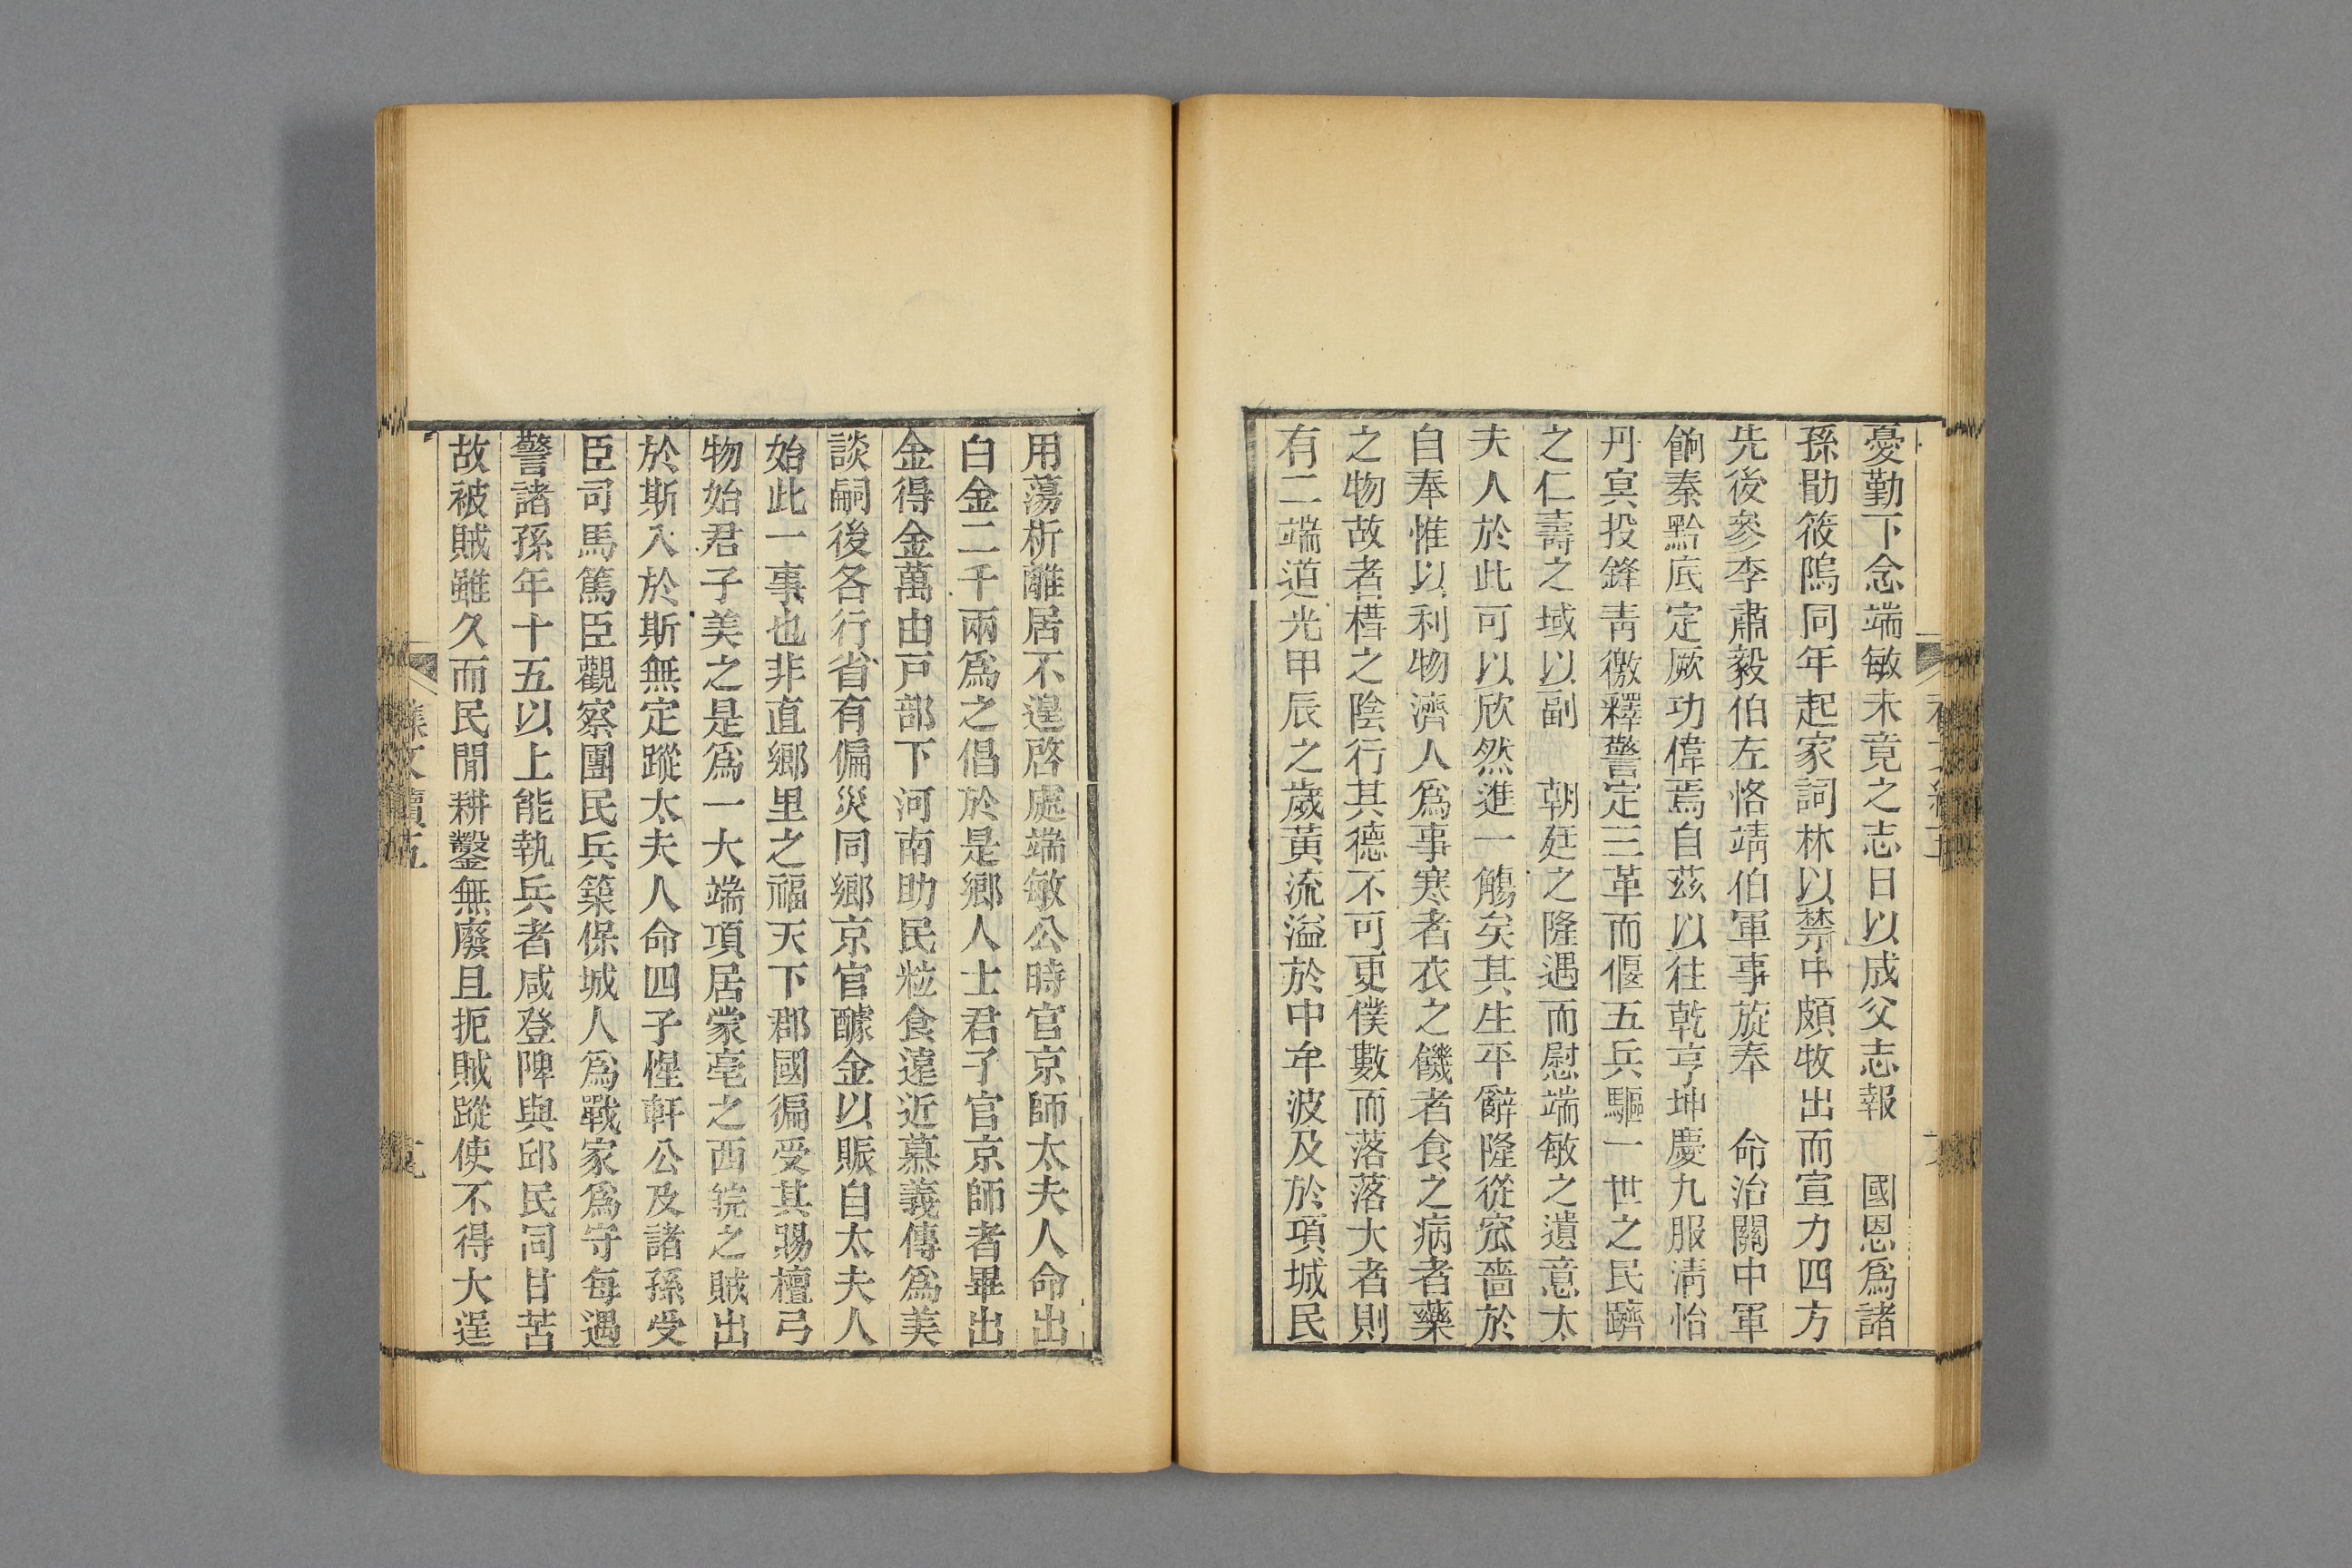 憂勤下念端敏未竟之志日以成父志報　國恩爲諸
孫勖筱隖同年起家詞林以禁中頗牧出而宣力四方
先後參李肅毅伯左恪靖伯軍事旋奉　命治關中軍
餉秦黔底定厥功偉焉自茲以往乾亨坤慶九服淸怡
丹寘投鋒靑徼釋警定三革而偃五兵驅一世之民躋
之仁壽之域以副　朝廷之隆遇而慰端敏之遺意太
夫人於此可以欣然進一觴矣其生平辭隆從窊嗇於
自奉惟以利物濟人爲事寒者衣之饑者食之病者藥
之物故者槥之陰行其德不可更僕數而落落大者則
有二端道光甲辰之歲黃流溢於中牟波及於項城民
用蕩析離居不遑啓處端敏公時官京師太夫人命出
白金二千兩爲之倡於是鄉人士君子官京師者畢出
金得金萬由戸部下河南助民粒食遠近慕義傳爲美
談嗣後各行省有偏災同鄉京官醵金以賑自太夫人
始此一事也非直鄉里之福天下郡國徧受其賜檀弓
物始君子美之是爲一大端項居蒙亳之西皖之賊出
於斯入於斯無定蹤太夫人命四子惺軒公及諸孫受
臣司馬篤臣觀察團民兵築保城人爲戰家爲守每遇
警諸孫年十五以上能執兵者咸登陴與邱民同甘苦
故被賊雖久而民閒耕鑿無廢且扼賊蹤使不得大逞